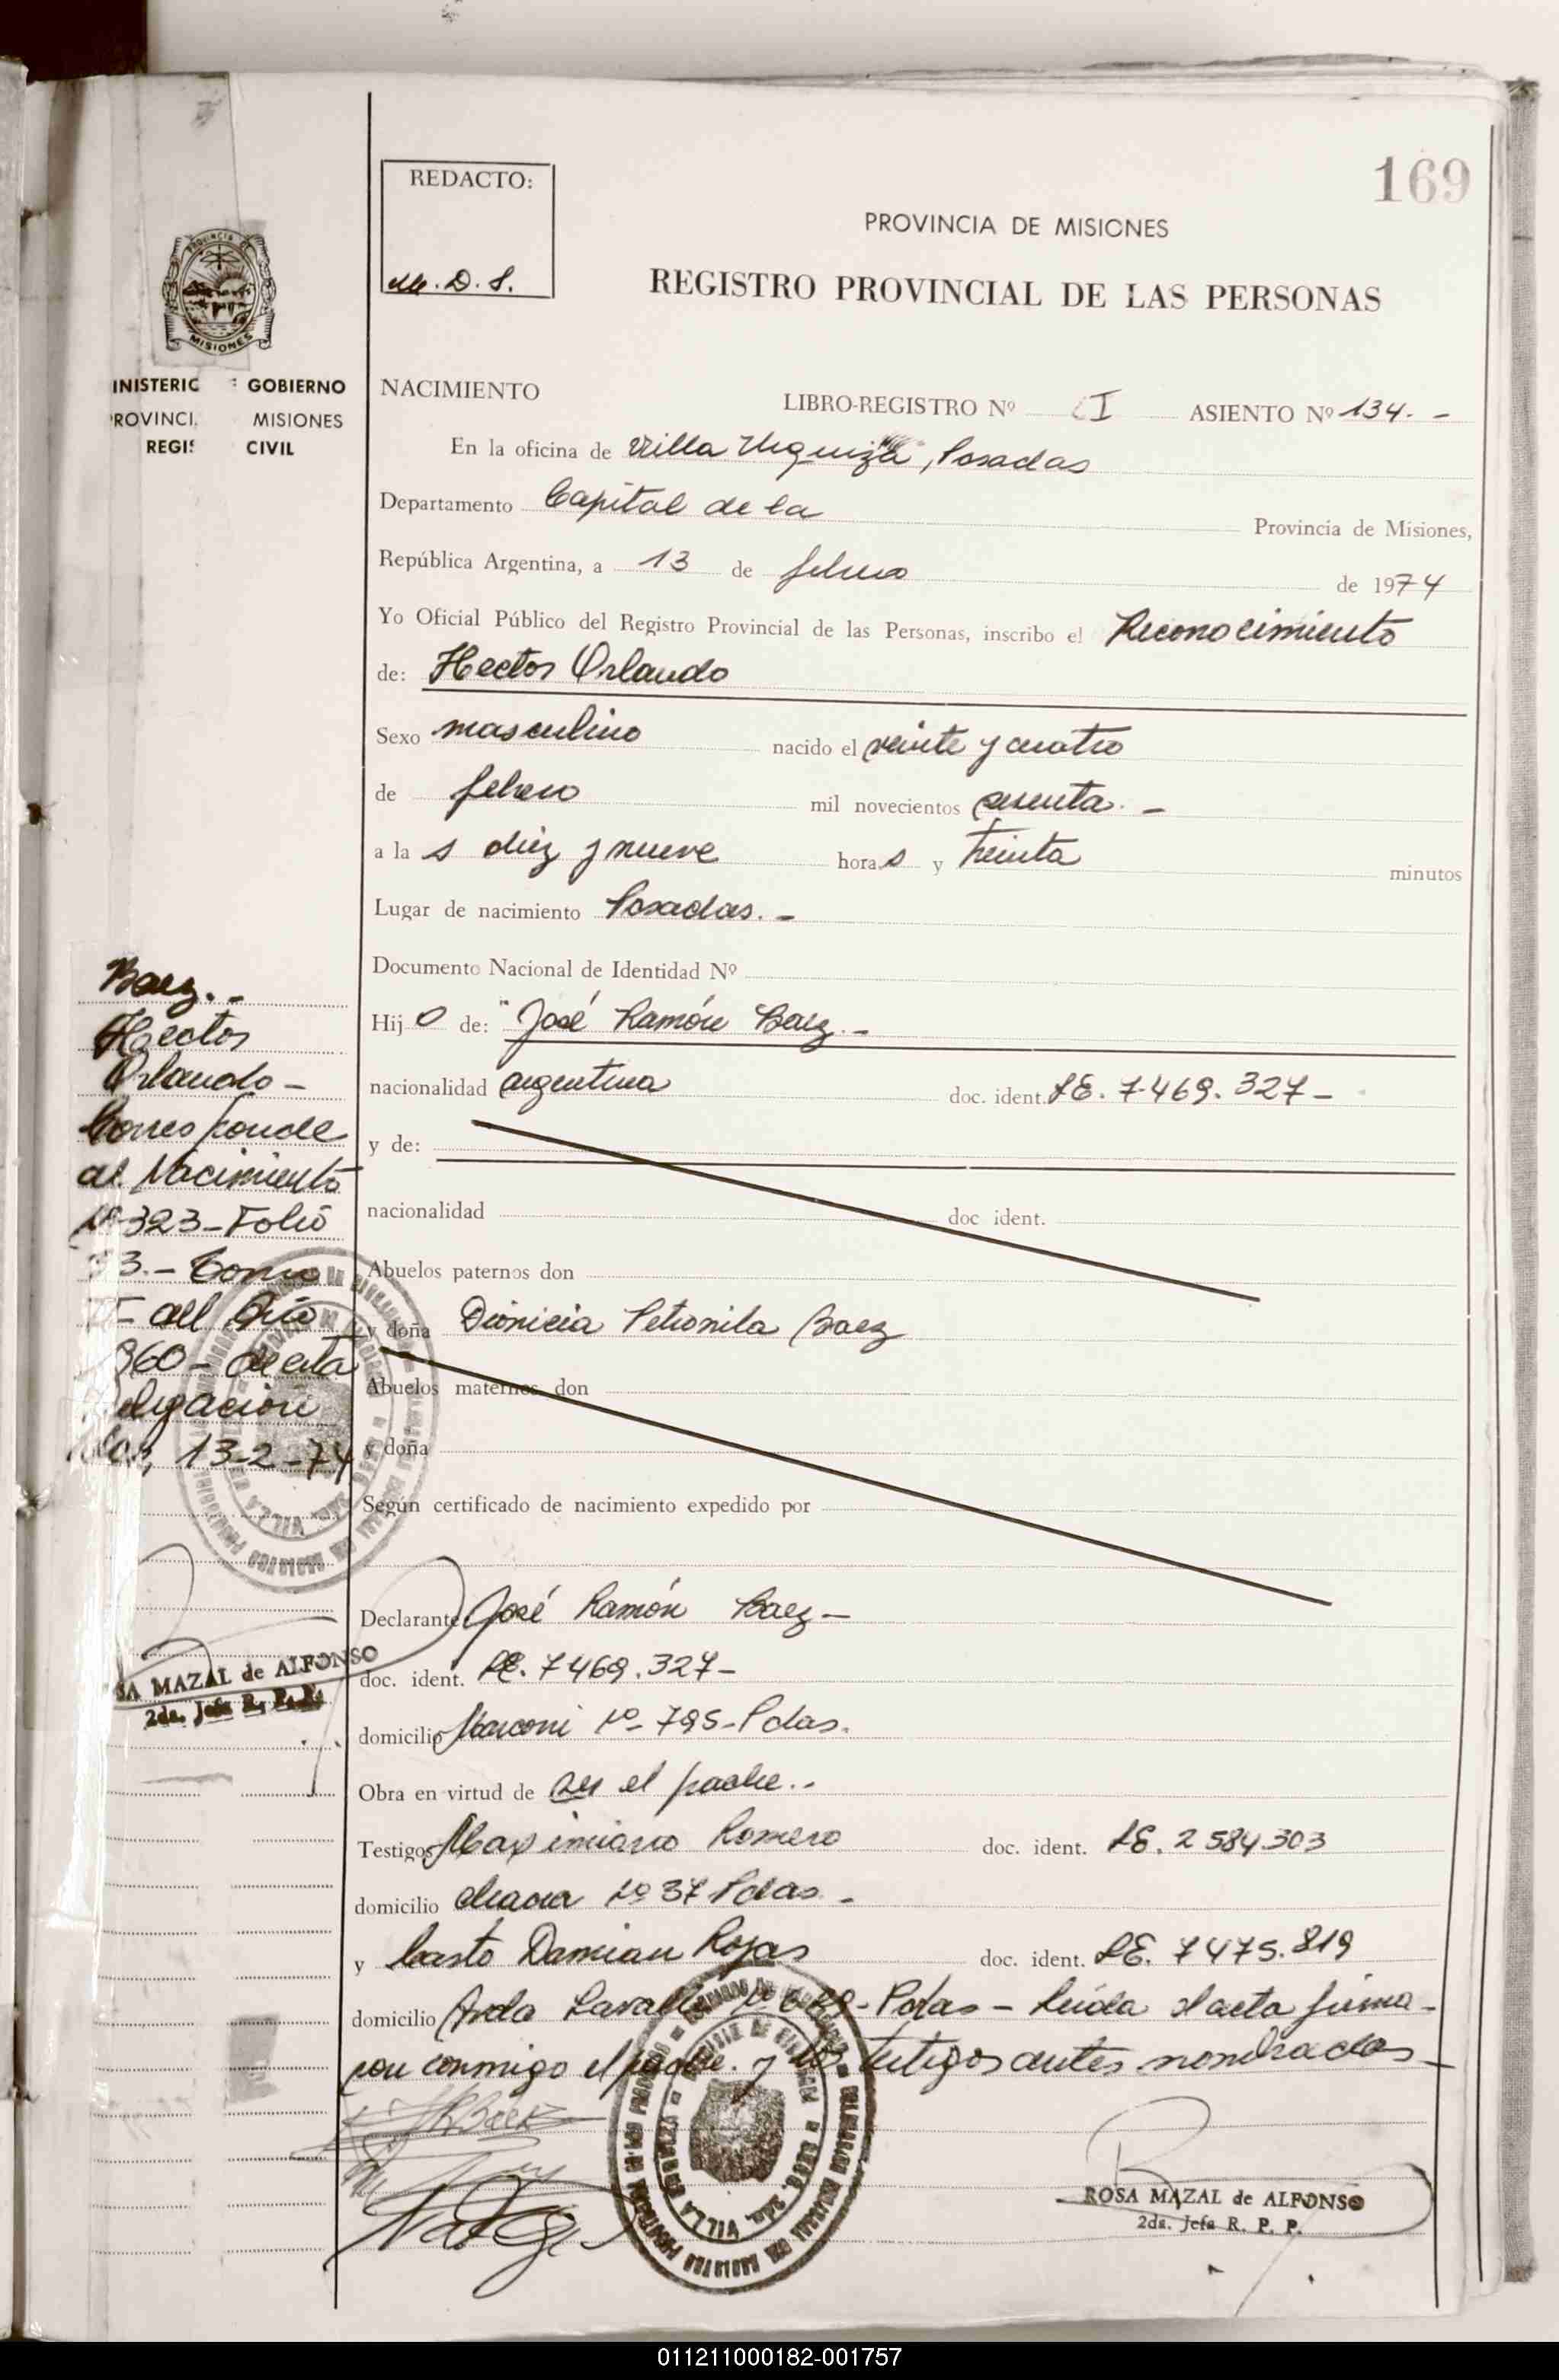 169
REDACTO:
M. D. S.
PROVINCIA DE MISIONES
REGISTRO PROVINCIAL DE LAS PERSONAS
PROVINCIA DE MISIONES
INISTERIO GOBIERNO
PROVINCI. MISIONES
REGIS CIVIL
NACIMIENTO
LIBRO-REGISTRO Nº I ASIENTO Nº 134. -
En la oficina de Villa Urquiza, Posadas
Departamento Capital de la Provincia de Misiones,
República Argentina, a 13 de febrero de 1974
Yo Oficial Público del Registro Provincial de las Personas, inscribo el Reconocimiento
de: Hector Orlando
Sexo masculino nacido el veinte y cuatro
de febrero mil novecientos sesenta. -
a la s diez y nueve hora s y treinta minutos
Lugar de nacimiento Posadas. -
Documento Nacional de Identidad Nº
Hij o de: José Ramón Baez. -
nacionalidad argentina doc. ident. LE. 7.469.327 -
y de:
nacionalidad doc ident.
Abuelos paternos don
y doña Dionicia Petronila Baez
Abuelos maternos don
y doña
Según certificado de nacimiento expedido por
Declarante José Ramón Baez -
doc. ident. LE. 7469.327 -
domicilio Marconi Nº 795 - Pdas.
Obra en virtud de ser el padre. -
Testigos Maximiano Romero doc. ident. LE. 2 584.303
domicilio chacra Nº 37 Pdas. -
y Casto Damian Rojas doc. ident. LE. 7475.819
domicilio Avda Lavalle Nº - Pdas - leída el acta firma-
ron conmigo el padre. y los testigos antes nombrados -
Baez. -
Hector
Orlando -
Corresponde
al Nacimiento
Nº 323 - Folio
53. - Tomo
II - del Año
1960 - de esta
Delegación
13-2-74
SA MAZAL de ALFONSO
2da. Jefa R. P. P.
ROSA MAZAL de ALFONSO
2da. Jefa R. P. P.
011211000182-001757